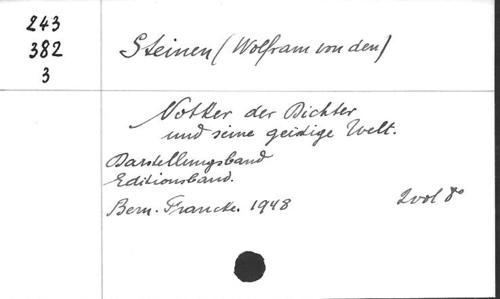 243
382
3
Steinen (Wolfram von den)
Notker der Dichter
und seine geistige Welt.
Darstellungsband
Editionsband.
Bern. Francke. 1948
2 vol 8°